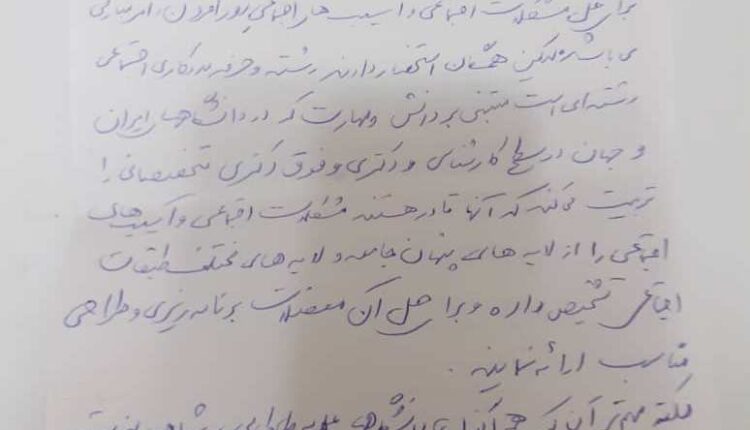 برای حل مشکلات اجتماعی و آسیب های اجتماعی
می باشد همگان استحضار دارند رشته و حرفه مددکاری اجتماعی
رشته ای است مبتنی بر دانش و مهارت که در دانشگاههای ایران
و جهان در سطح کارشناسی و دکتری و فوق دکتری متخصصانی را
تربیت می کند که آنها قادر هستند مشکلات اجتماعی و آسیب های
اجتماعی را از لایه های پنهان جامعه و لایه های مختلف طبقات
اجتماعی تشخیص داده و برای حل آن معضلات برنامه ریزی و طراحی
مناسب ارائه نمایند .
نکته مهم تر آن که